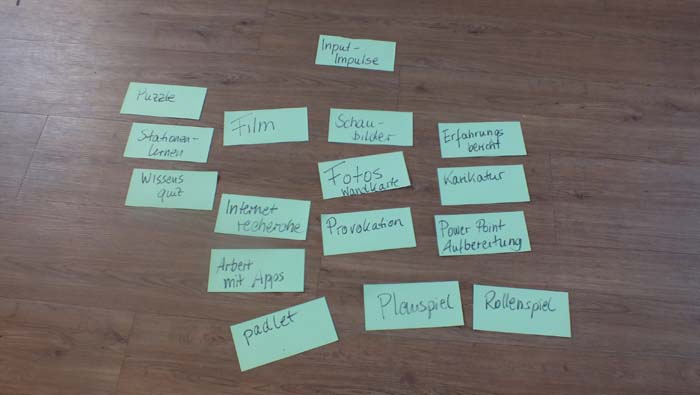 Input-
Impulse
Puzzle
Film
Schau-
bilder
Erfahrungs
bericht
Stationen-
lernen
Fotos
Wandkarte
Karikatur
Wissens
quiz
Internet
recherche
Provokation
Power Point
Aufbereitung
Arbeit
mit Apps
padlet
Planspiel
Rollenspiel